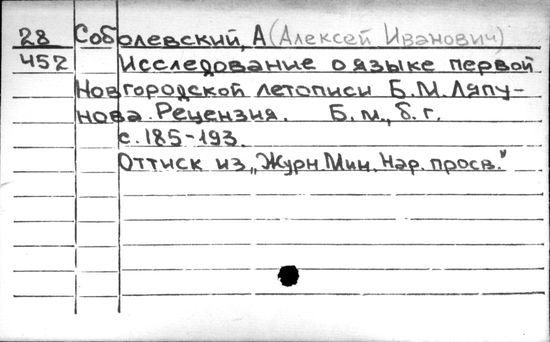 28 Соболевский, А (Алексей Иванович)
452 Исследование о языке первой
Новгородской летописи Б.М. Ляпу-
нова. Рецензия. Б.м., б.г.
с. 185-193.
Оттиск из „Журн. Мин. Нар. просв."